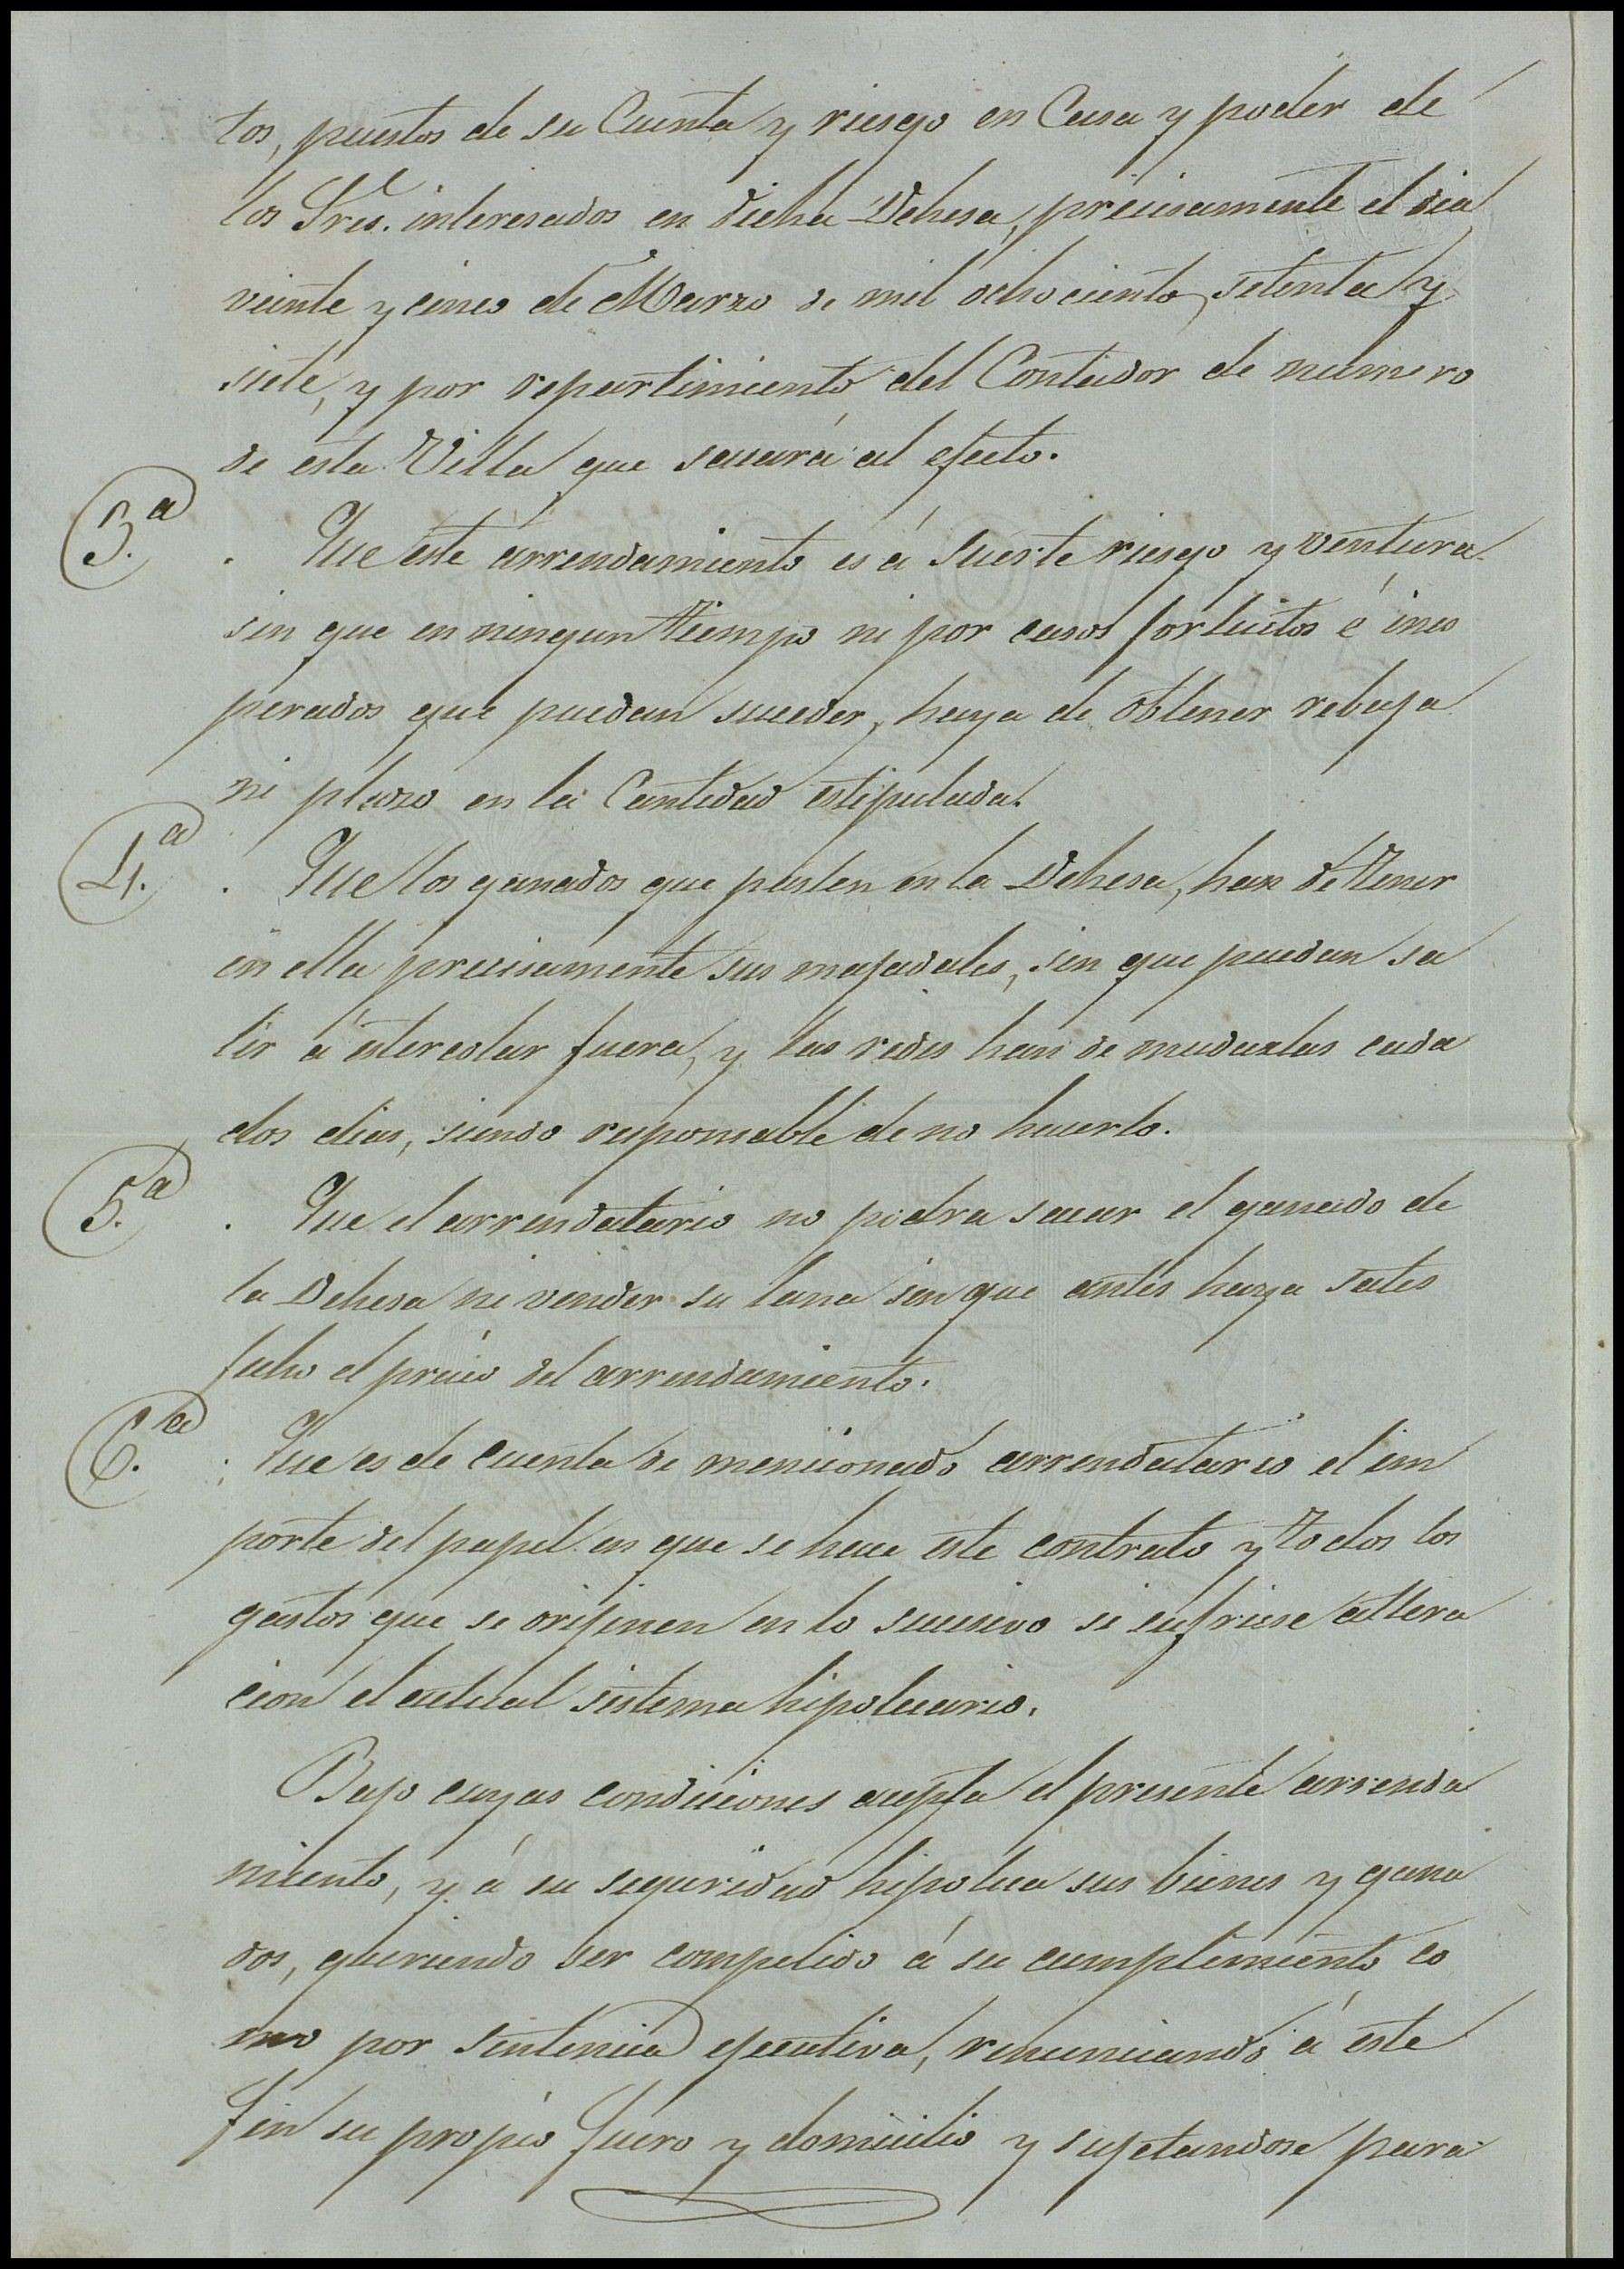 tos, puestos de su Cuenta y riesgo en Casa y poder de
los Sres. interesados en dicha Dehesa, precisamente el dia
veinte y cinco de Marzo de mil ochocientos setenta y
siete, y por repartimiento del Contador de numero
de esta Villa que sacará al efecto.
3.a . Que este arrendamiento es á suerte riesgo y ventura
sin que en ningun tiempo ni por casos fortuitos é ines
perados que puedan suceder, haya de obtener rebaja
ni plazo en la Cantidad estipulada.
4.a . Que los ganados que pasten en la Dehesa, han de tener
en ella precisamente sus majadales, sin que puedan sa
lir á estercolar fuera, y las redes han de mudarlas cada
dos dias, siendo responsable de no hacerlo.
5.a . Que el arrendatario no podra sacar el ganado de
la Dehesa ni vender su lana sin que antes haya satis
fecho el precio del arrendamiento.
6.a . Que es de cuenta de mencionado arrendatario el im
porte del papel en que se hace este contrato y todos los
gastos que se orijinen en lo sucesivo si sufriese altera
cion el actual sistema hipotecario.
Bajo cuyas condiciones acepta el presente arrenda
miento, y á su seguridad hipoteca sus bienes y gana
dos, queriendo ser compelido á su cumplimiento co
mo por sentencia ejecutiva, renunciando á este
fin su propio fuero y domicilio y sujetandose para